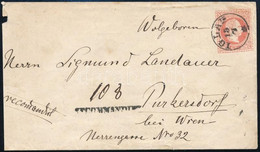 Wolgeboren
Herrn Sigmund Landauer
103
recomandirt
RECOMMANDIRT
Purkersdorf
bei Wien
Herrengasse No 32